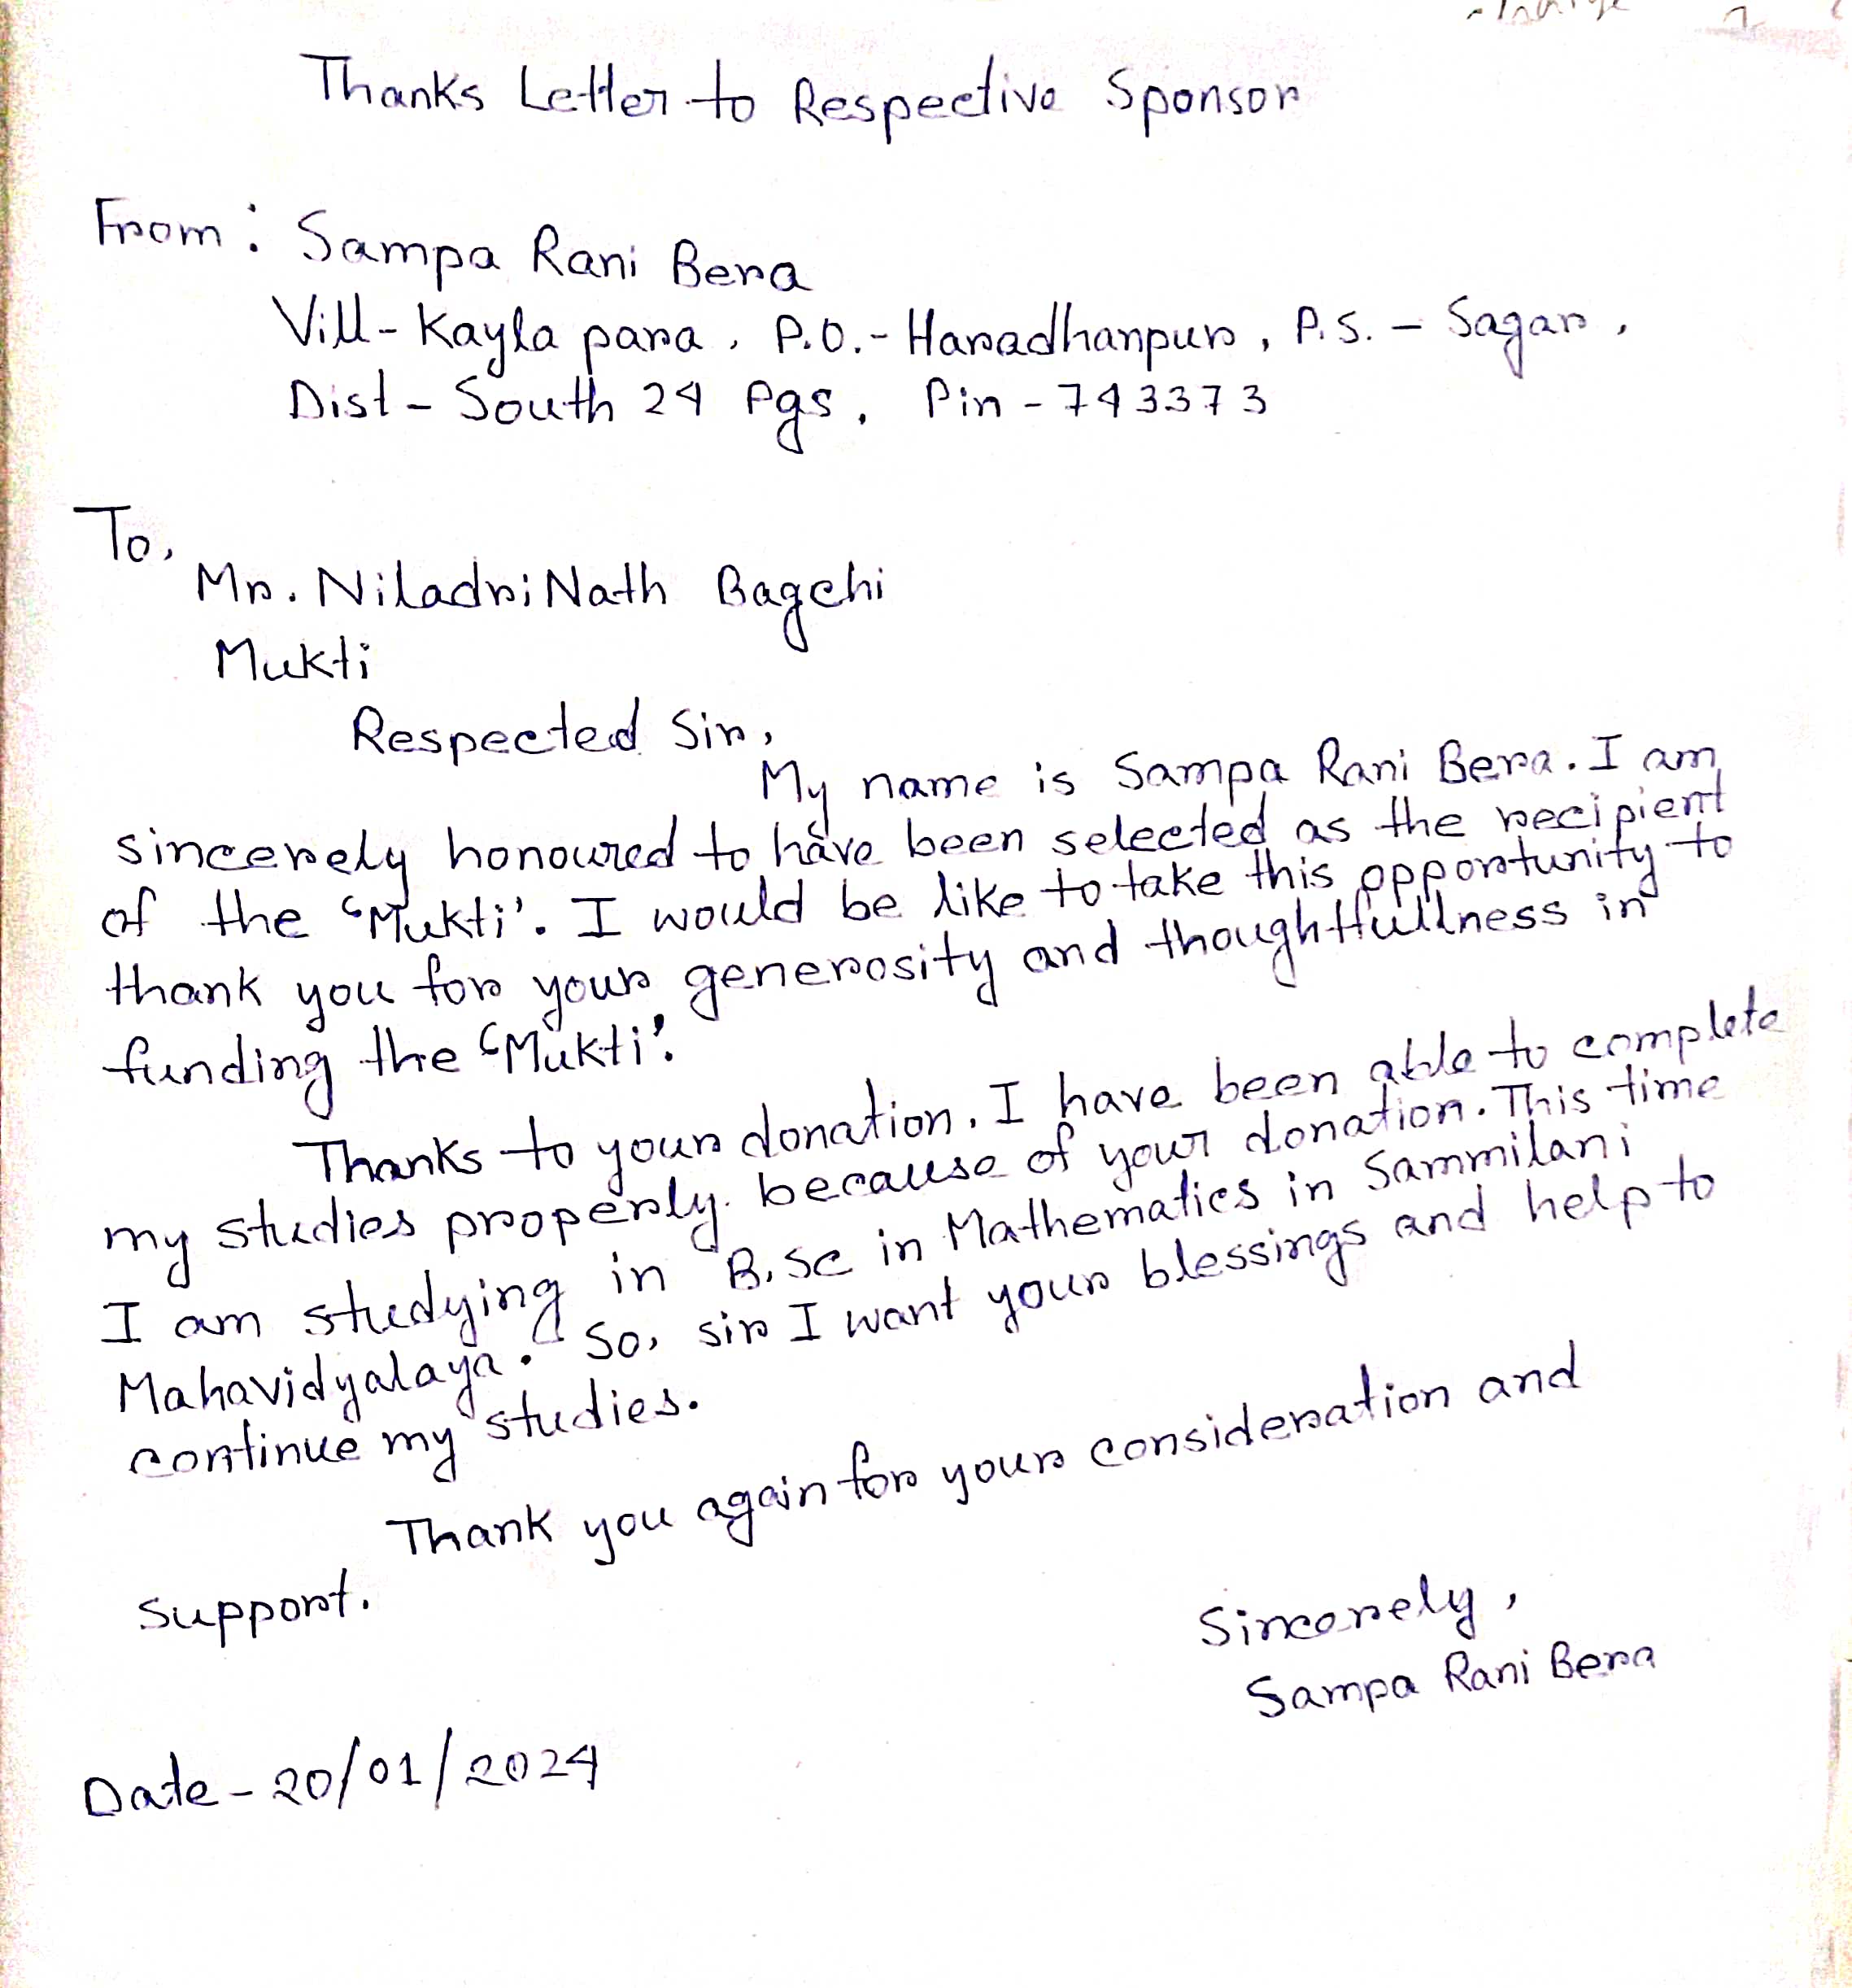 Thanks Letter to Respective Sponsor
From : Sampa Rani Bera
Vill - Kayla para, P.O. - Haradhanpur, P.S. - Sagar,
Dist - South 24 Pgs, Pin - 743373
To,
Mr. Niladri Nath Bagchi
Mukti
Respected Sir,
My name is Sampa Rani Bera. I am
sincerely honoured to have been selected as the recipient
of the 'Mukti'. I would be like to take this opportunity to
thank you for your generosity and thoughtfullness in
funding the 'Mukti'.
Thanks to your donation, I have been able to complete
my studies properly. because of your donation. This time
I am studying in B.sc in Mathematics in Sammilani
Mahavidyalaya. So, sir I want your blessings and help to
continue my studies.
Thank you again for your consideration and
support.
Sincerely,
Sampa Rani Bera
Date - 20/01/2024